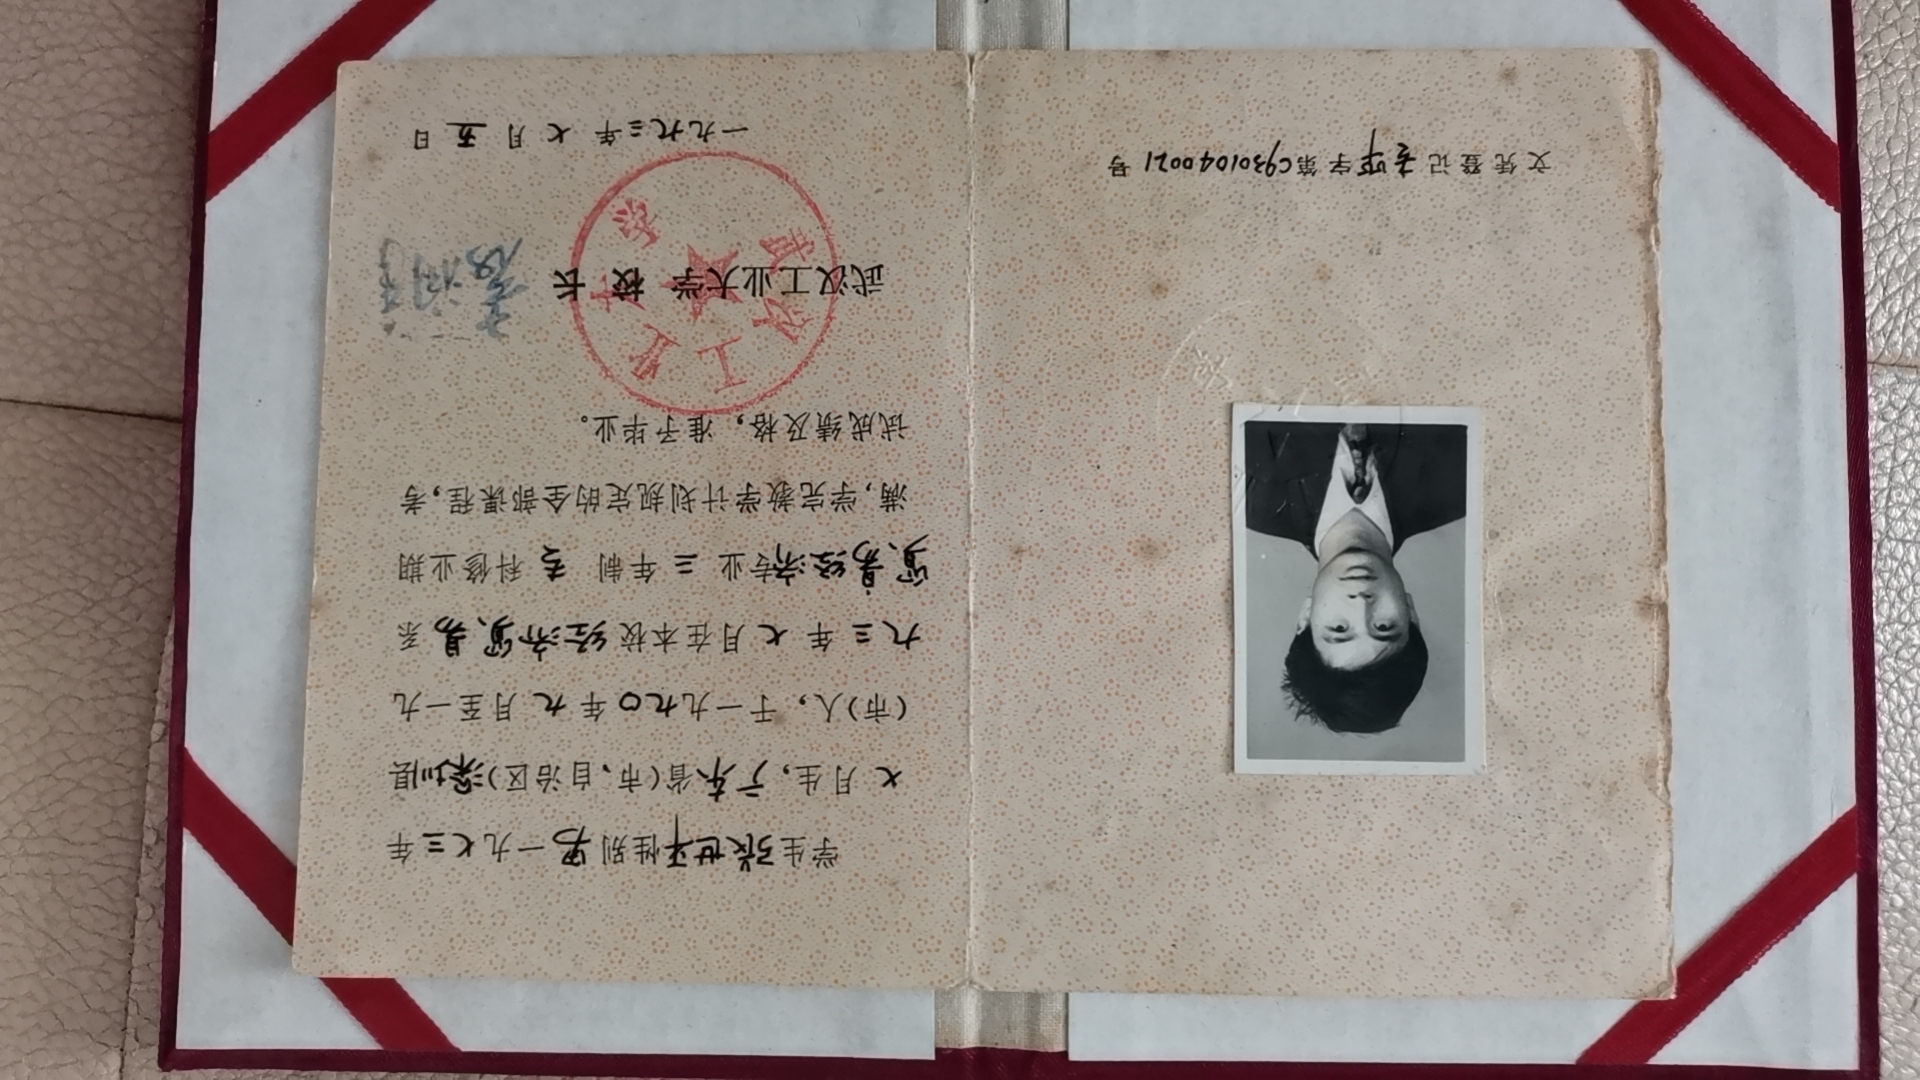 文凭登记专毕字第C930104 0021号
学生张世平性别男一九七三年
七月生，广东省(市、自治区)深圳县
(市)人，于一九九〇年九月至一九
九三年七月在本校经济贸易系
贸易经济专业三年制专科修业期
满，学完教学计划规定的全部课程，考
试成绩及格，准予毕业。
武汉工业大学 校长
一九九三年七月五日